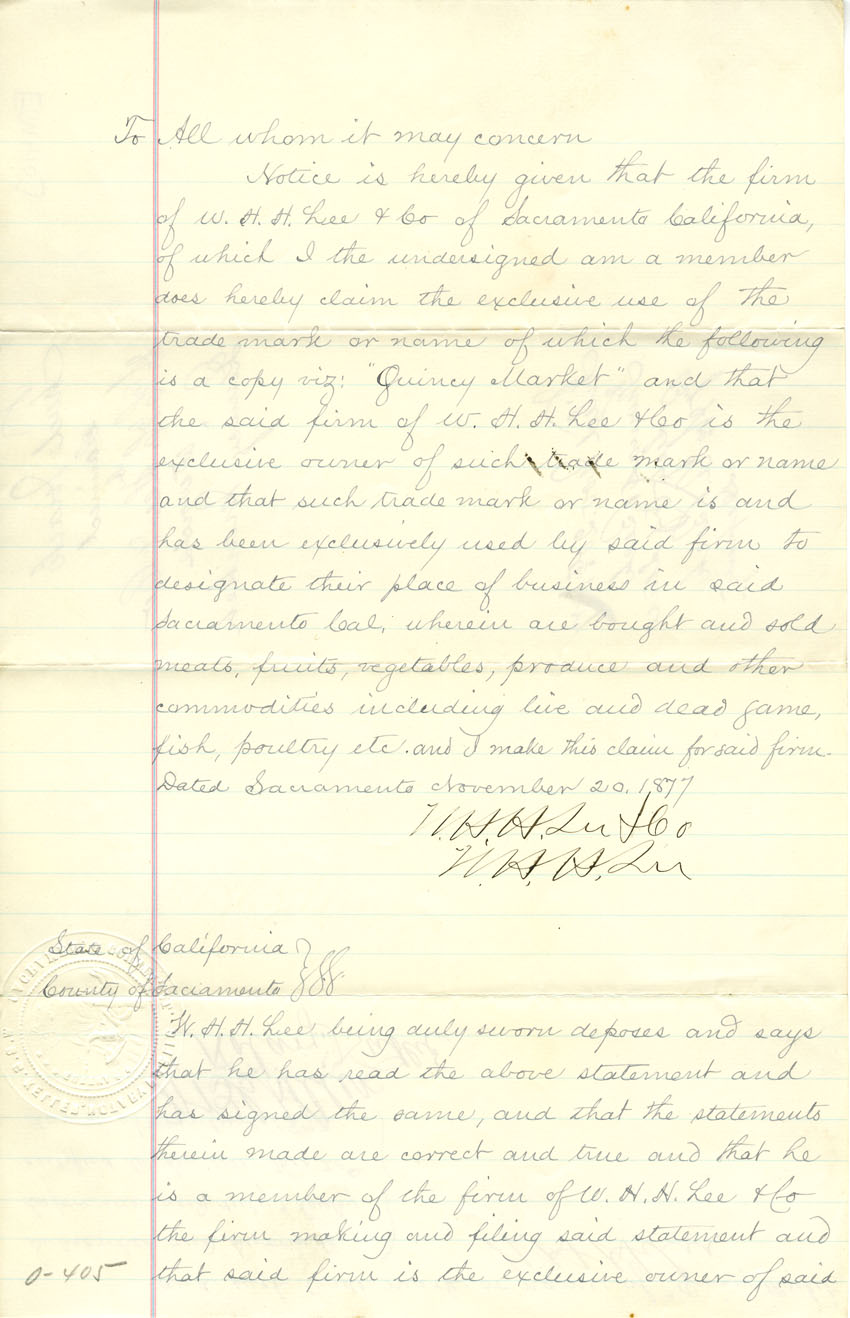 To All whom it may concern
Notice is hereby given that the firm
of W. H. H. Lee & Co of Sacramento California,
of which I the undersigned am a member
does hereby claim the exclusive use of the
trade mark or name of which the following
is a copy viz: "Quincy Market" and that
the said firm of W. H. H. Lee & Co is the
exclusive owner of such trade mark or name
and that such trade mark or name is and
has been exclusively used by said firm to
designate their place of business in said
Sacramento Cal, wherein are bought and sold
meats, fruits, vegetables, produce and other
commodities including live and dead game,
fish, poultry etc. and I make this claim for said firm.
Dated Sacramento November 20. 1877
W. H. H. Lee & Co
W. H. H. Lee
State of California
County of Sacramento } SS
W. H. H. Lee being duly sworn deposes and says
that he has read the above statement and
has signed the same, and that the statements
therein made are correct and true and that he
is a member of the firm of W. H. H. Lee & Co
the firm making and filing said statement and
that said firm is the exclusive owner of said
0-405